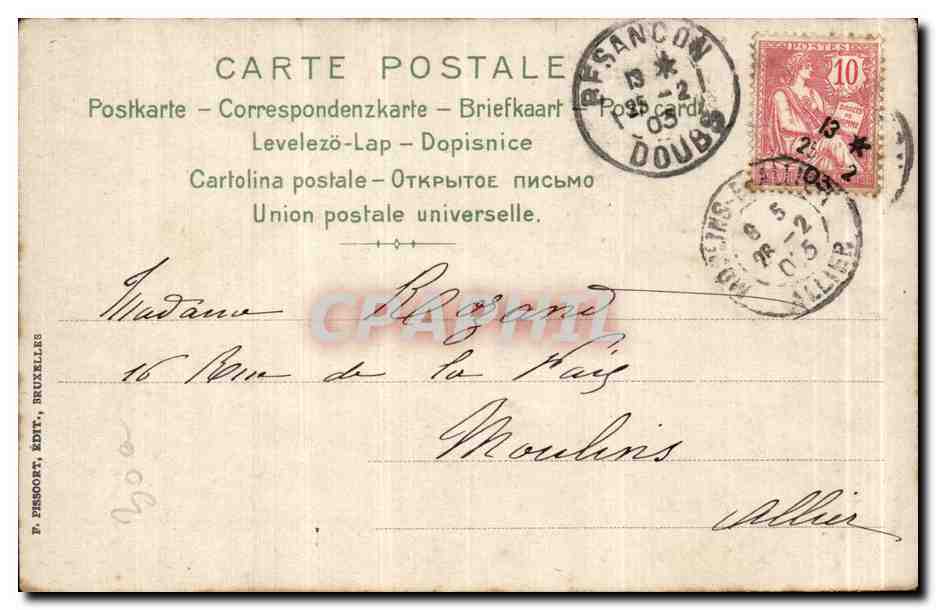 CARTE POSTALE
Postkarte – Correspondenzkarte – Briefkaart – Post card
Levelező-Lap – Dopisnice
Cartolina postale – Открытое письмо
Union postale universelle.
BESANCON
13 *
25 - 2
05
DOUBS
POSTES
10
13 *
25 2
05
5
26 - 2
05
ALLIER
CPAPHIL
Madame Rozand
16 Rue de la Paix
Moulins
Allier
F. PISSOORT, ÉDIT., BRUXELLES
300